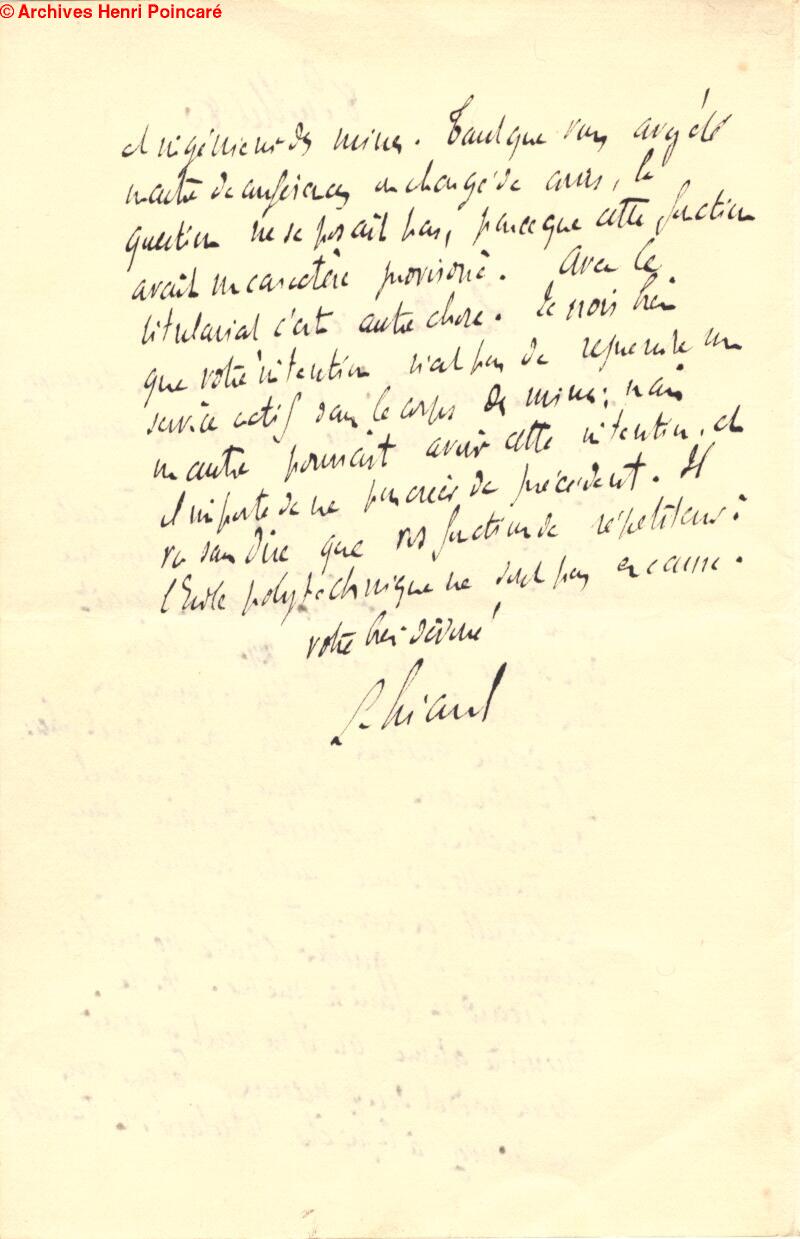 © Archives Henri Poincaré
et ingénieur des mines. Tant que vous avez été
maître de conférences ou chargé de cours, la
question ne se posait pas, parce que cette fonction
avait un caractère provisoire. Avec le
titulariat c'est autre chose. Je crois bien
que votre intention n'est pas de reprendre un
service actif dans le corps des mines; mais
un autre pourrait avoir cette intention, et
il importe de ne pas créer de précédent. Il
va sans dire que vos fonctions de répétiteur à
l'Ecole polytechnique ne sont pas en cause.
votre très dévoué
L. Liard